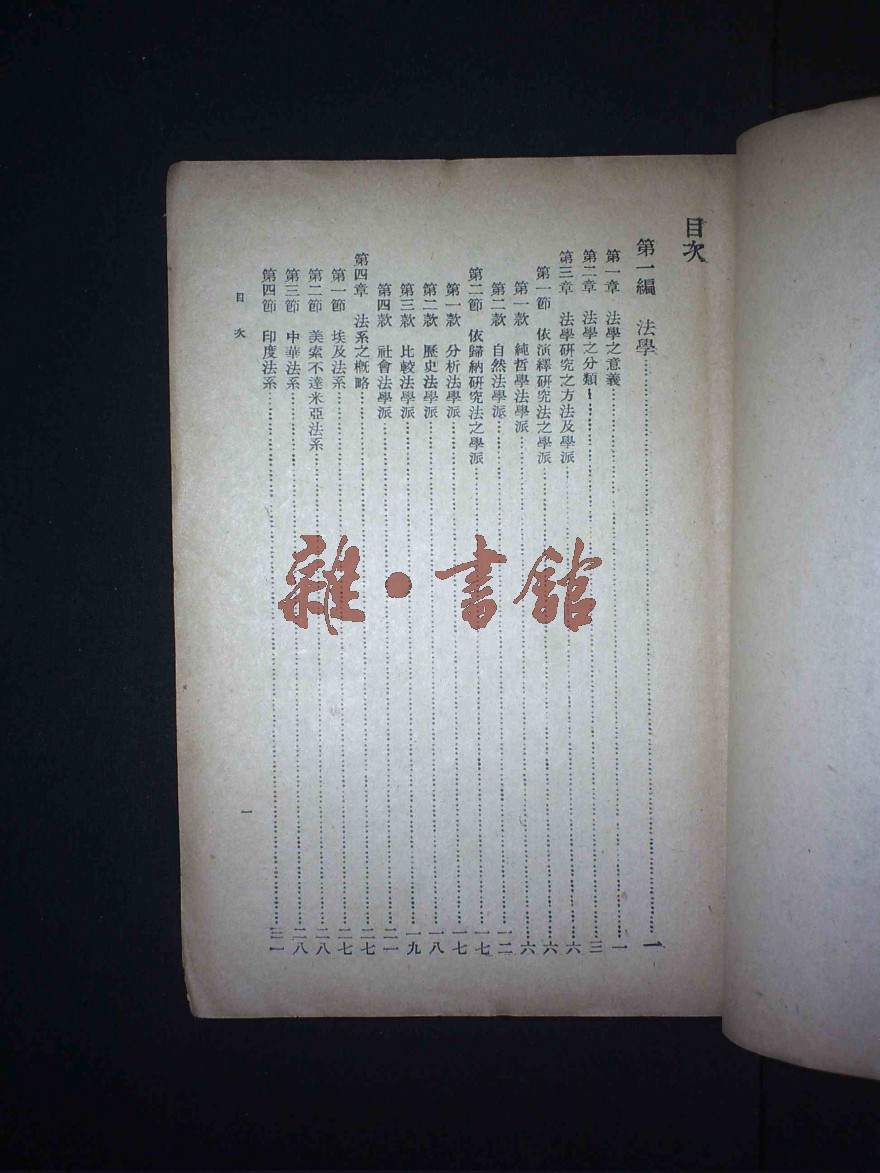 目次
第一編　法學……一
第一章　法學之意義……一
第二章　法學之分類……三
第三章　法學研究之方法及學派……六
第一節　依演繹研究法之學派……六
第一款　純哲學法學派……六
第二款　自然法學派……一二
第二節　依歸納研究法之學派……一七
第一款　分析法學派……一七
第二款　歷史法學派……一八
第三款　比較法學派……一九
第四款　社會法學派……二一
第四章　法系之概略……二七
第一節　埃及法系……二七
第二節　美索不達米亞法系……二八
第三節　中華法系……二八
第四節　印度法系……三一
目次　一
雜·書館